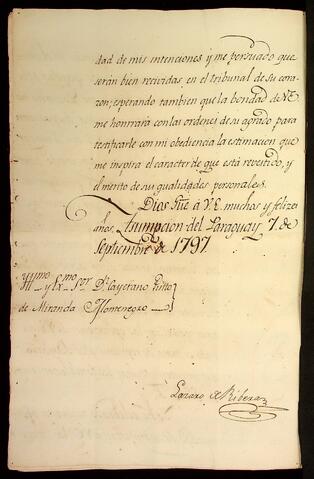 dad de mis intenciones y me persuado que
serán bien recividas en el tribunal de su cora
zon; esperando tambien que la bondad de V.E.
me honrrará con las ordenes de su agrado para
testificarle con mi obediencia la estimacion que
me inspira el caracter de que está revestido, y
el merito de sus qualidades personales.
Dios gũe á V.E. muchos y felizes
años. Asumpcion del Paraguay 7. de
Septiembre de 1797.
Yllmo. y Exmo. Sor. Dn. Cayetano Pinto
de Miranda Montenegro
Lazaro de Ribera